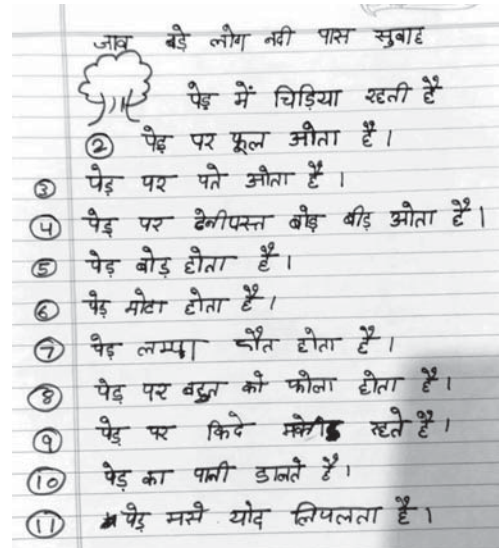 जाव बड़े लोग नदी पास सुबाह
पेड़ में चिड़िया रहती है
② पेड़ पर फूल ओता है।
③ पेड़ पर पते ओता है।
④ पेड़ पर बोड़ बीड़ ओता है।
⑤ पेड़ बोड़ होता है।
⑥ पेड़ मोटा होता है।
⑦ पेड़ लम्पा होता है।
⑧ पेड़ पर बहुत को फोला होता है।
⑨ पेड़ पर किदे रहते है।
⑩ पेड़ का पानी डालते है।
⑪ पेड़ मसे योद लिपलता है।